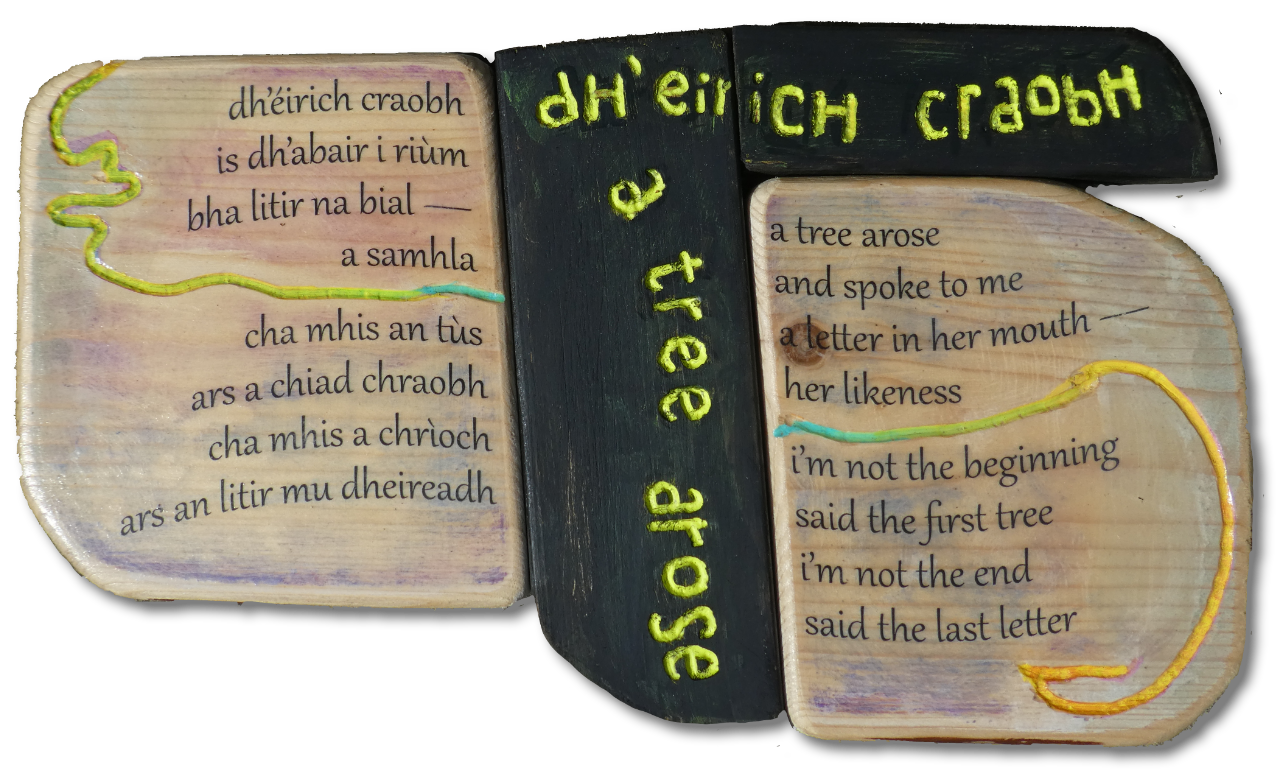 dh'éirich craobh
is dh'abair i riùm
bha litir na bial —
a samhla
cha mhis an tùs
ars a chiad chraobh
cha mhis a chrìoch
ars an litir mu dheireadh
dH'eiricH craobH
a tree arose
a tree arose
and spoke to me
a letter in her mouth —
her likeness
i'm not the beginning
said the first tree
i'm not the end
said the last letter